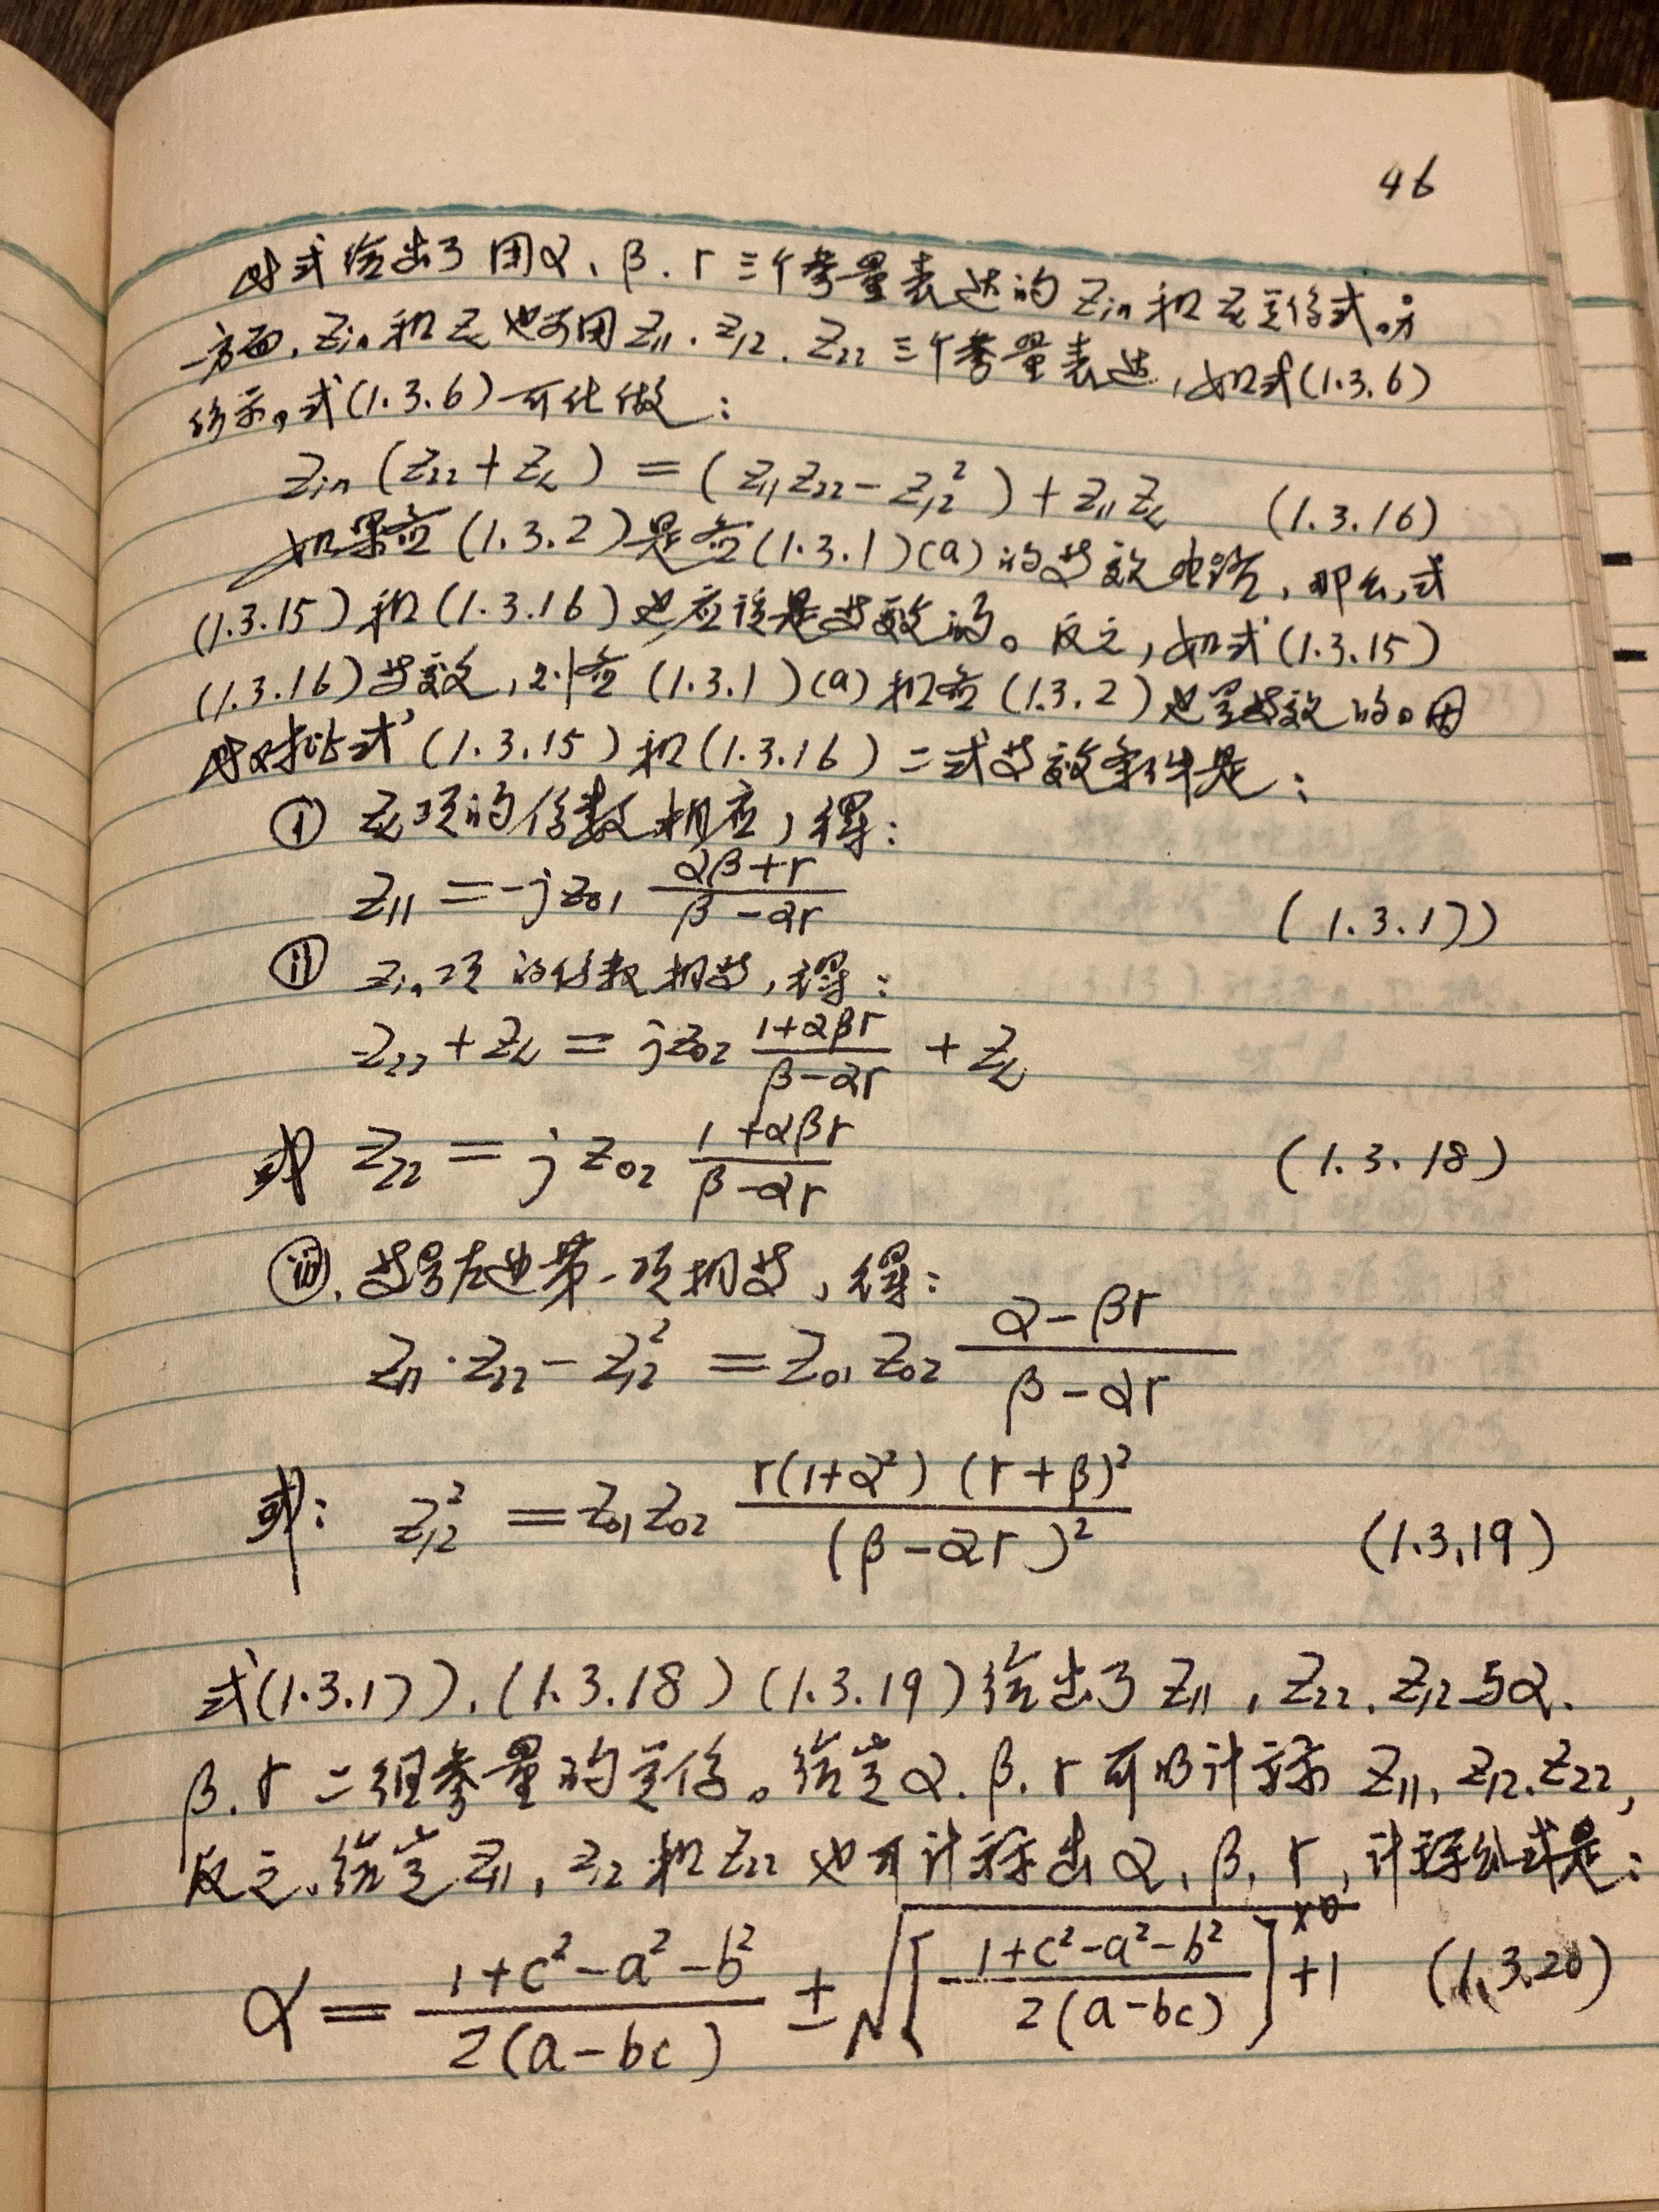 46
此式给出了用α、β、r三个参量表达的Zin和ZL关系式。另
一方面,Zin和ZL也可用Z11、Z12、Z22三个参量表达,如式(1.3.6)
所示。式(1.3.6)可化做:
Zin(Z22+ZL)=(Z11Z22-Z12²)+Z11ZL (1.3.16)
如果图(1.3.2)是图(1.3.1)(a)的等效电路,那么,式
(1.3.15)和(1.3.16)也应该是等效的。反之,如式(1.3.15)
(1.3.16)等效,则图(1.3.1)(a)和图(1.3.2)也是等效的。因
此对比式(1.3.15)和(1.3.16)二式等效条件是:
ⓘ ZL项的系数相应,得:
Z11=-jZ01 (αβ+r)/(β-αr) (1.3.17)
ⓘⓘ Zin项的系数相等,得:
Z22+ZL=jZ02 (1+αβr)/(β-αr) +ZL
或 Z22=jZ02 (1+αβr)/(β-αr) (1.3.18)
ⓘⓘⓘ. 等号右边第一项相等,得:
Z11·Z22-Z12²=Z01Z02 (α-βr)/(β-αr)
或: Z12²=Z01Z02 r(1+α²)(r+β)²/(β-αr)² (1.3.19)
式(1.3.17)、(1.3.18)(1.3.19)给出了Z11,Z22、Z12与α、
β、r二组参量的关系。给定α、β、r可以计算Z11、Z12、Z22,
反之、给定Z11,Z12和Z22也可计算出α、β、r,计算公式是:
α=(1+c²-a²-b²)/2(a-bc) ±√[(1+c²-a²-b²)/2(a-bc)]+1 (1.3.20)